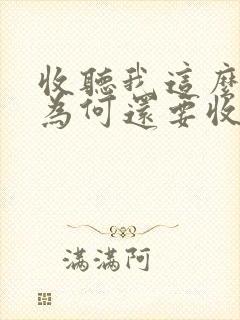 收聽我這麼
為何還要收
滿滿阿